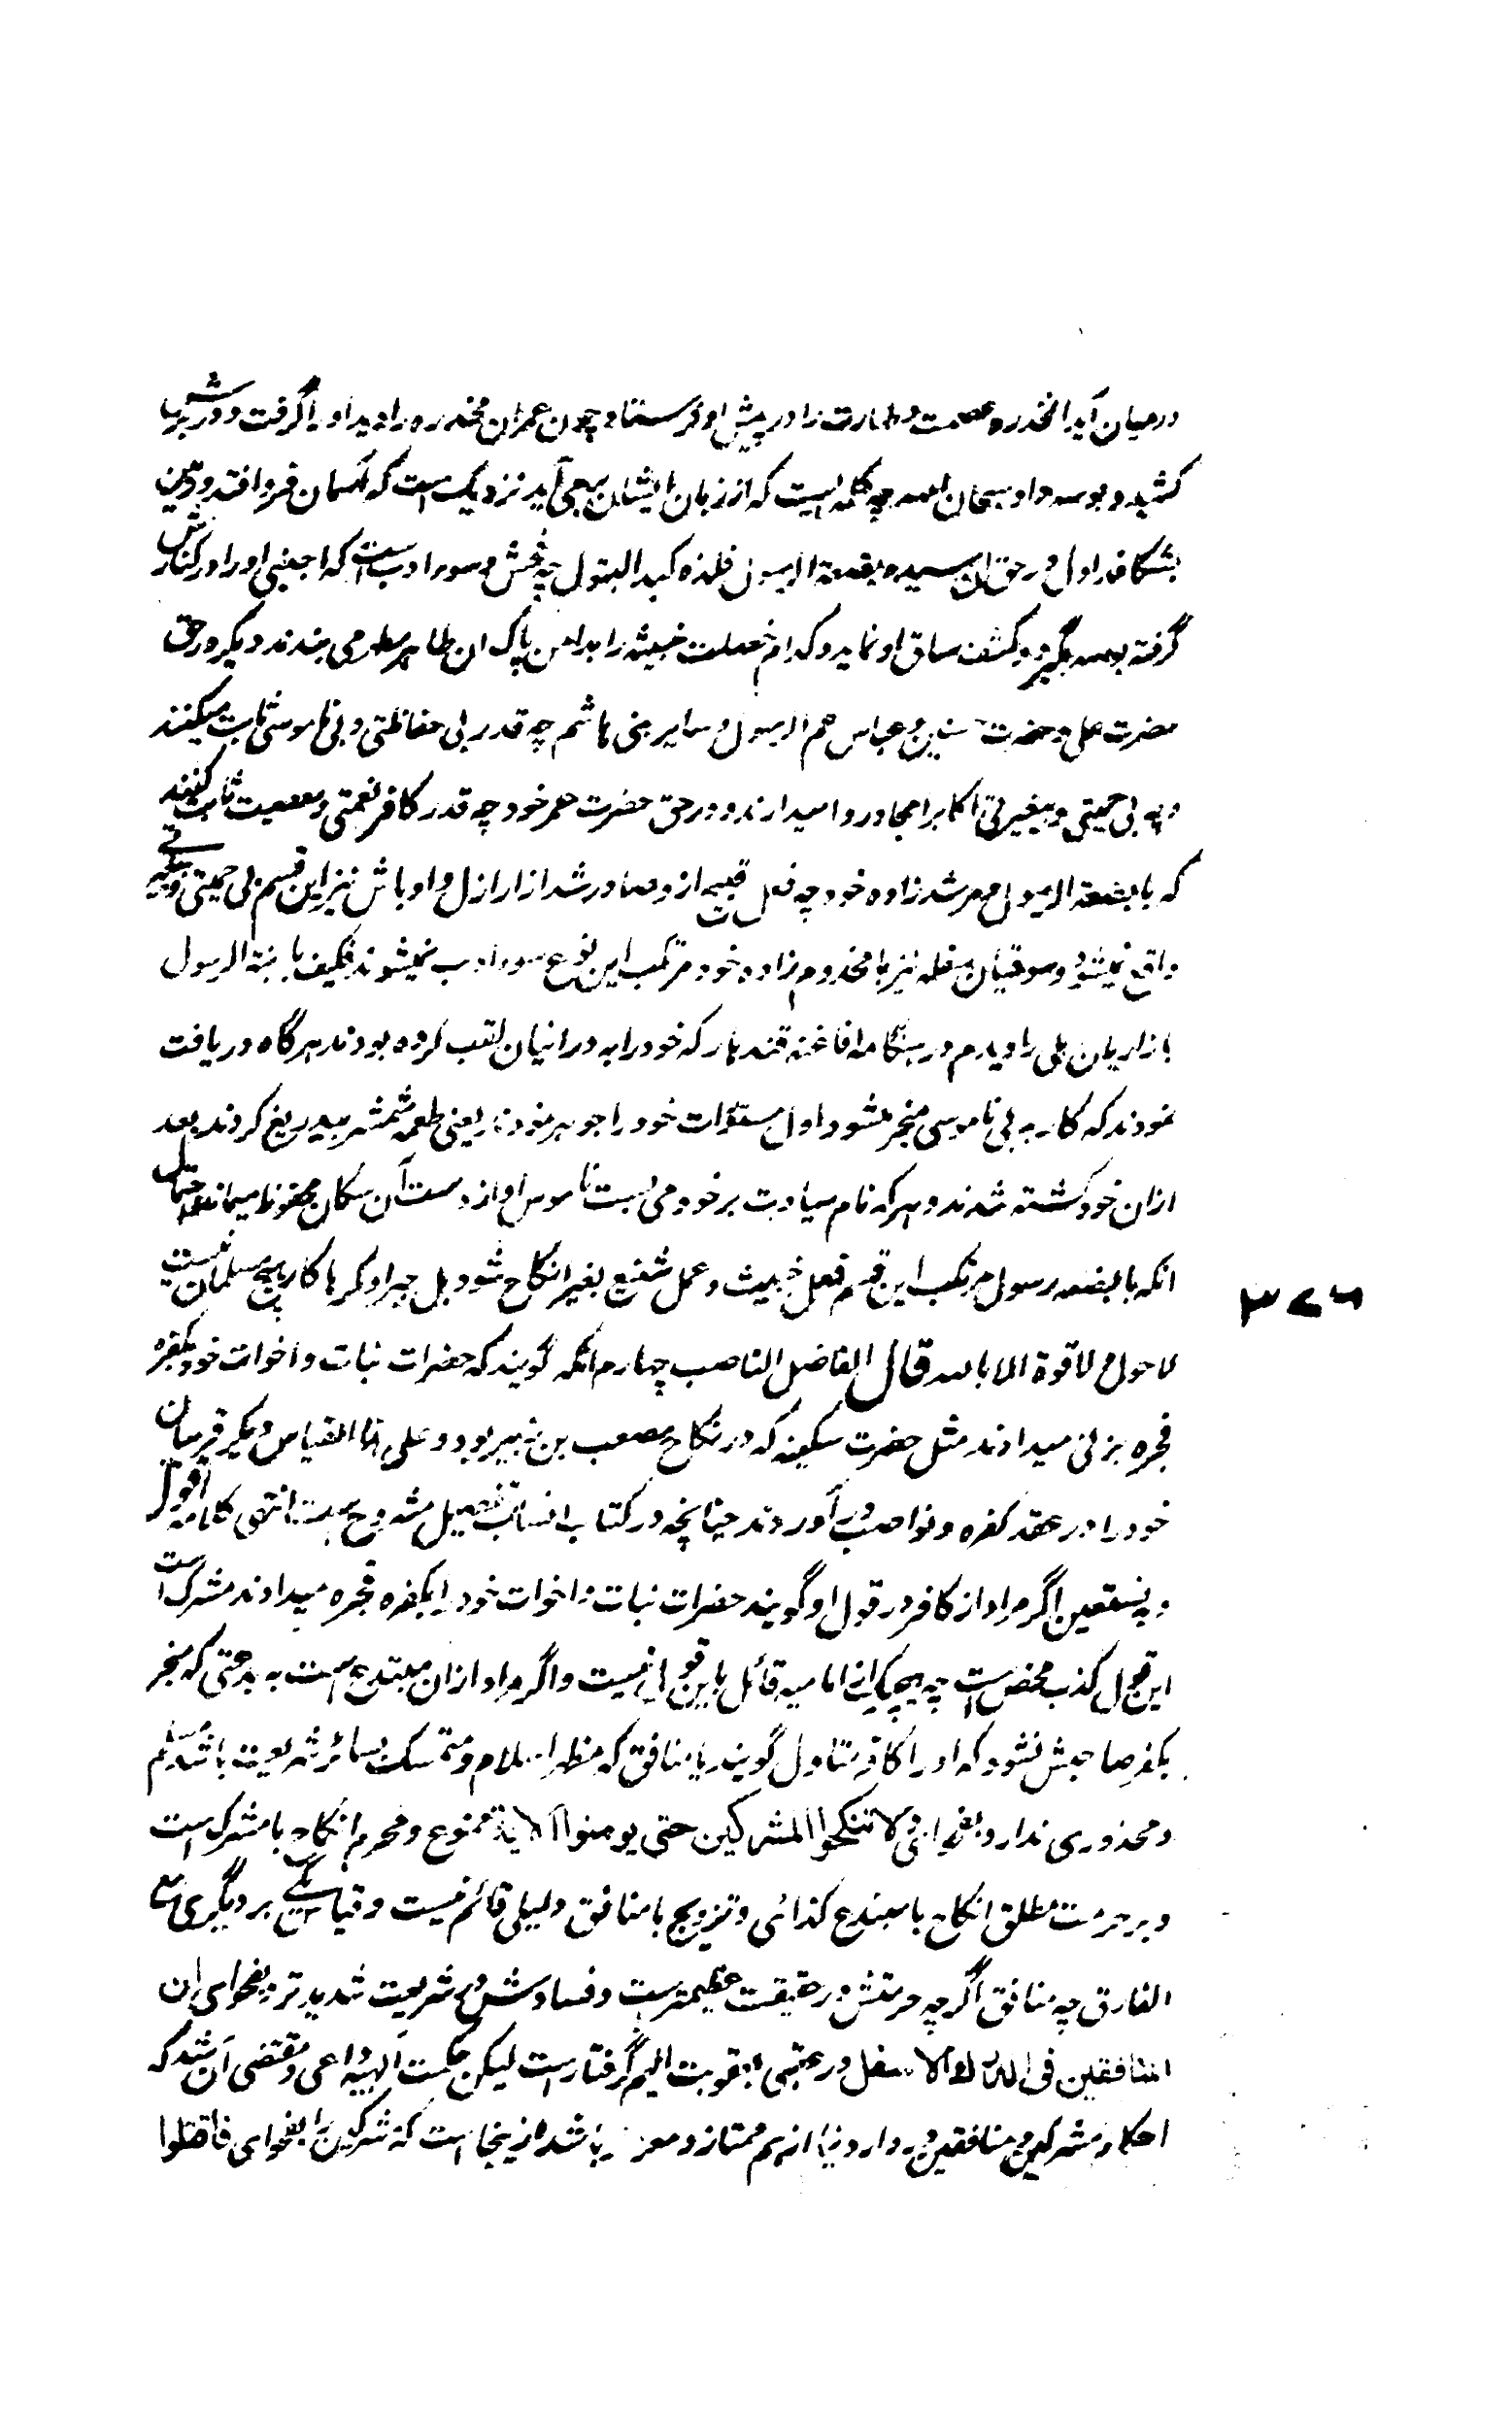 درمیان آید انمخدره عصمت و طهارت را در پیش او فرستاد چون عمر ان مخدره را دید او را گرفت و در برش
کشید و بوسه داد سبحان الله چه کلمه ایست که از زبان ایشان بر می آید نزدیک است که آسمان فرو افتد و زمین
بشگافد اول در حق ان سیده بضعة الرسول فلذه کبد البتول چه فحش و سوء ادب است که اجنبی او را در کنارش
گرفته بوسه بگیرد و کشف ساق او نماید و کدام خصلت خبیثه را بدامن پاک ان طاهره مطهره می بندند دیگر در حق
حضرت علی و حضرت حسنین و عباس عم الرسول و سایر بنی هاشم چه قدر بی حفاظتی و بی ناموسی ثابت میکنند
و چه بی حمیتی و بیغیرتی اکابر امجاد روا میدارند و در حق حضرت عمر خود چه قدر کافر نعمتی و معصیت ثابت کنند
که با بضعة الرسول و مرشد زاده خود چه فعل قبیح از و صادر شد از ارازل و اوباش نیز این قسم بی حمیتی و بیغیرتی
واقع نمیشود و سوقیان سفله نیز با مخدوم زاده خود مرتکب این نوع سوء ادب نمیشوند فکیف با بنة الرسول
بازاریان دهلی را دیدم در هنگامه افاغنه قندهار که خود را به درانیان لقب کرده بودند هرگاه دریافت
نمودند که کار به بی ناموسی منجر میشود اول مستورات خود را جوهر نمودند یعنی طعمه شمشیر بیدریغ کردند بعد
ازان خود کشته شدند و هر که نام سیادت بر خود می بست ناموس او از دست آن سگان محفوظ میماند احتمال
انکه با بضعه رسول مرتکب این قسم فعل خبیث و عمل شنیع بغیر انکاح شود بل جبرا و کرها کار هیچ مسلمان نیست
لا حول و لا قوة الا بالله قال الفاضل الناصب چهارم انکه گویند که حضرات بنات و اخوات خود بکفره
فجره بزنی میدادند مثل حضرت سکینه که در نکاح مصعب بن زبیر بود و علی هذا القیاس دیگر قریبان
خود را در عقد کفره و نواصب در آوردند چنانچه در کتاب انساب بتفصیل مشروح است انتهی کلامه اقول
و به نستعین اگر مراد از کافر در قول او گویند حضرات بنات و اخوات خود را بکفره فجره میدادند مشرک است
این قول کذب محض است چه هیچ یک از امامیه قائل باین قول نیست و اگر مراد ازان مبتدع است به بدعتی که منجر
بکفر صاحبش نشود که او را کافر متاول گویند یا منافق که مظهر اسلام و متمسک بسائر شریعت باشد مسلم
و محذوری ندارد بفحوای لا تنکحوا المشرکین حتی یومنوا الآیة ممنوع و محرم انکاح با مشرک است
و بر حرمت مطلق انکاح با مبتدع کذائی و تزویج با منافق دلیلی قائم نیست و قیاس یکی بر دیگری مع
الفارق چه منافق اگر چه حرمتش در حقیقت عظیمتر است و فسادش در شریعت شدیدتر و بفحوای ان
المنافقین فی الدرک الاسفل در عقبی بعقوبت الیم گرفتار است لیکن حکمت آلهیه داعی و مقتضی آن شد که
احکام مشرکین و منافقین در دار دنیا از هم ممتاز و معرز باشد ازینجا است که مشرکین را بفحوای فاقتلوا
۳۷۶